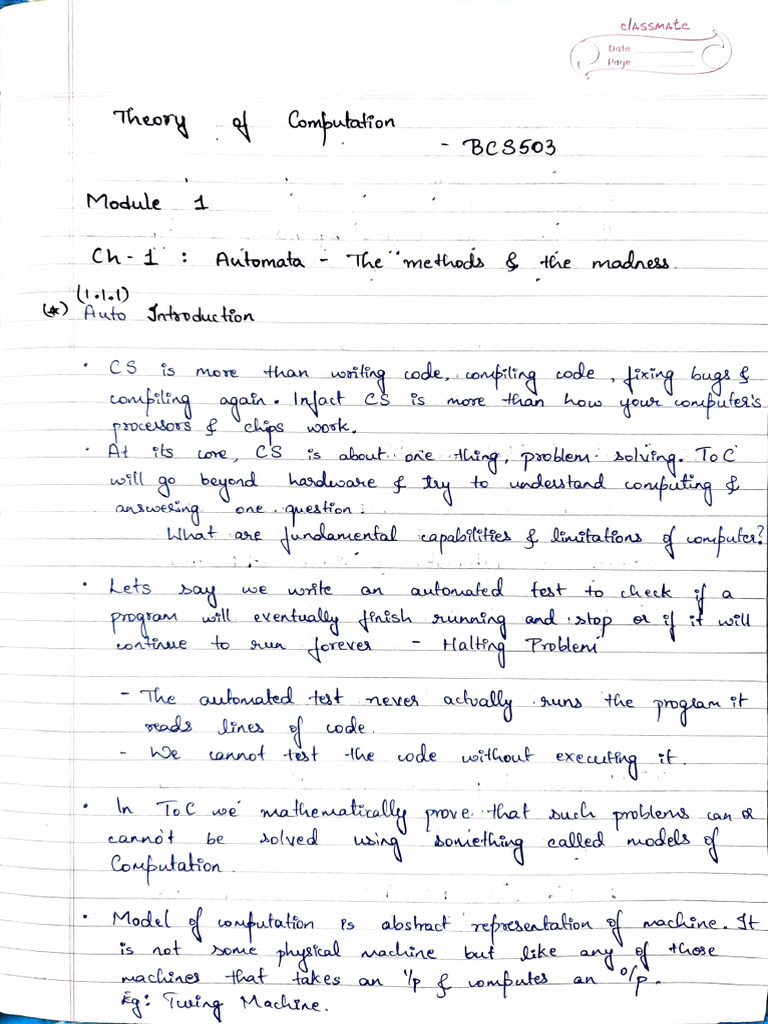 classmate
Date
Page
Theory of Computation
- BCS503
Module 1
Ch-1 : Automata - The methods & the madness.
(1.1.1)
(*) Auto Introduction
• CS is more than writing code, compiling code, fixing bugs &
compiling again. Infact CS is more than how your computer's
processors & chips work.
• At its core, CS is about one thing, problem solving. ToC
will go beyond hardware & try to understand computing &
answering one question:
What are fundamental capabilities & limitations of computer?
• Lets say we write an automated test to check if a
program will eventually finish running and stop or if it will
continue to run forever - Halting Problem
- The automated test never actually runs the program it
reads lines of code.
- We cannot test the code without executing it.
• In ToC we mathematically prove that such problems can or
cannot be solved using something called models of
Computation.
• Model of computation is abstract representation of machine. It
is not some physical machine but like any of those
machines that takes an i/p & computes an o/p.
Eg: Turing Machine.